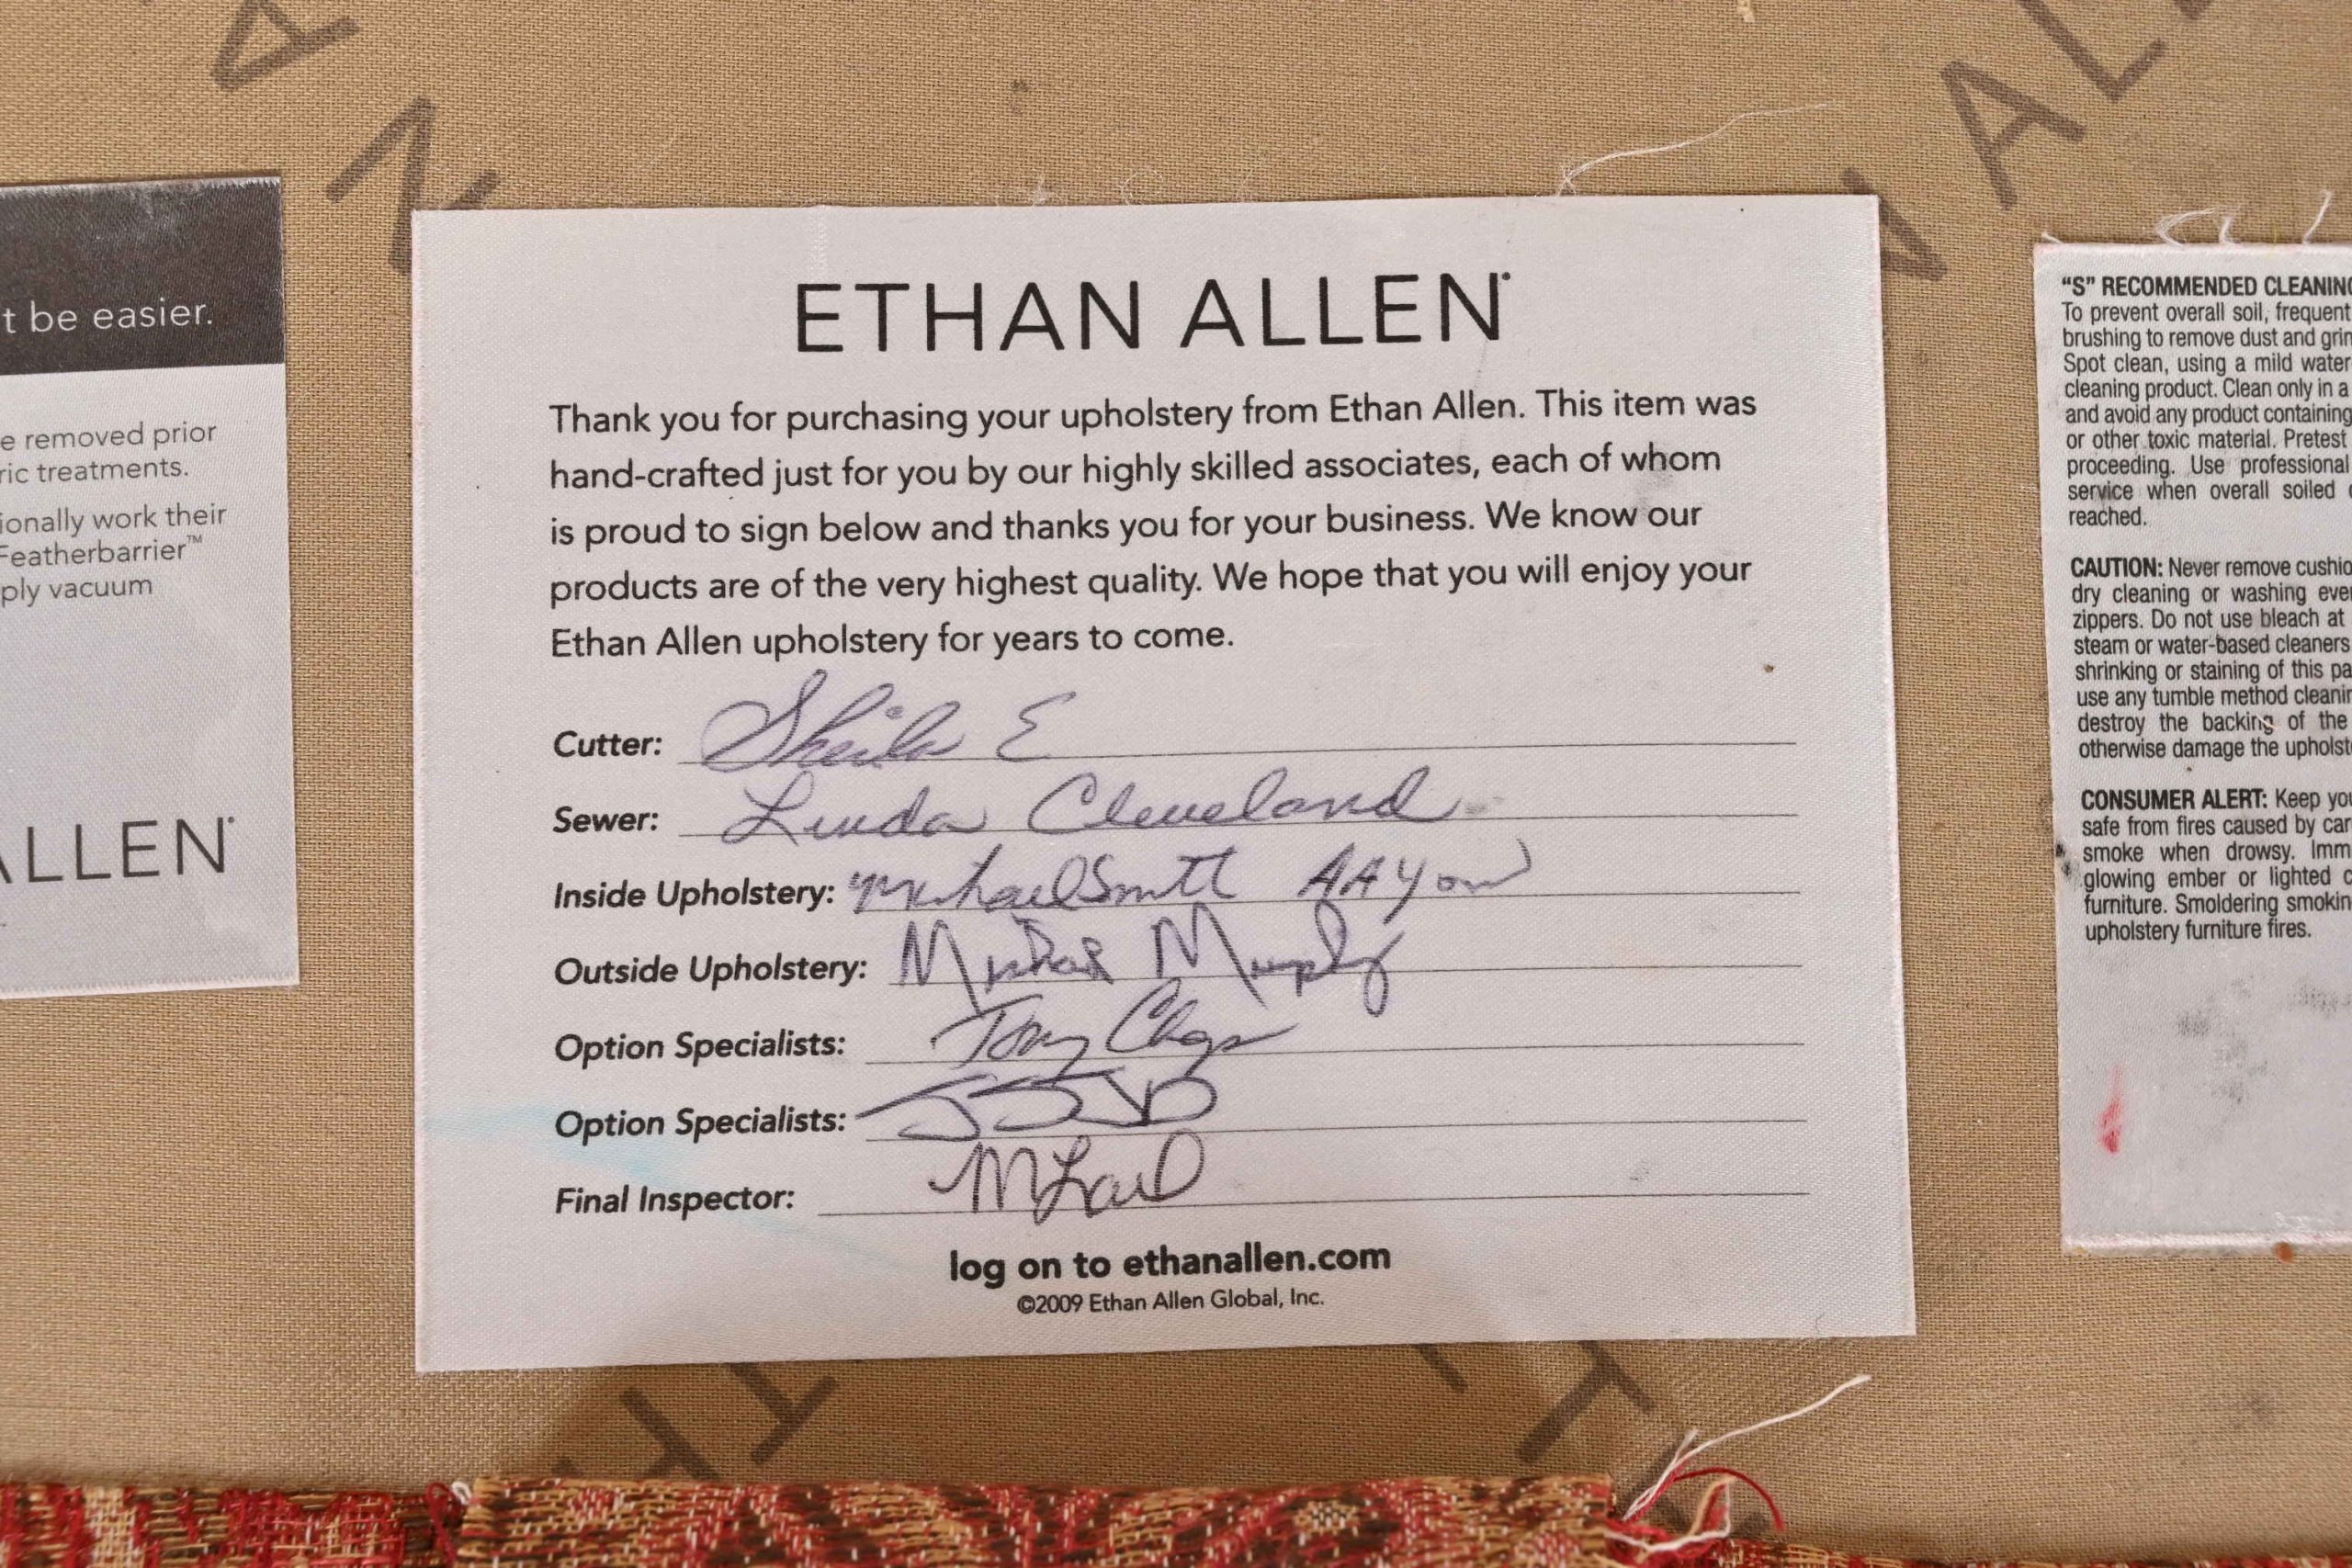 t be easier.
e removed prior
ric treatments.
ionally work their
Featherbarrier™
ply vacuum
ALLEN
ETHAN ALLEN
Thank you for purchasing your upholstery from Ethan Allen. This item was
hand-crafted just for you by our highly skilled associates, each of whom
is proud to sign below and thanks you for your business. We know our
products are of the very highest quality. We hope that you will enjoy your
Ethan Allen upholstery for years to come.
Cutter: Sheila E
Sewer: Linda Cleveland
Inside Upholstery: Michael Smith
Outside Upholstery: Murphy
Option Specialists: Tony
Option Specialists:
Final Inspector:
log on to ethanallen.com
©2009 Ethan Allen Global, Inc.
"S" RECOMMENDED CLEANING
To prevent overall soil, frequent
brushing to remove dust and grim
Spot clean, using a mild water
cleaning product. Clean only in a
and avoid any product containing
or other toxic material. Pretest
proceeding. Use professional
service when overall soiled
reached.
CAUTION: Never remove cushio
dry cleaning or washing eve
zippers. Do not use bleach at
steam or water-based cleaners
shrinking or staining of this pa
use any tumble method cleanin
destroy the backing of the
otherwise damage the upholst
CONSUMER ALERT: Keep you
safe from fires caused by car
smoke when drowsy. Imm
glowing ember or lighted c
furniture. Smoldering smokin
upholstery furniture fires.